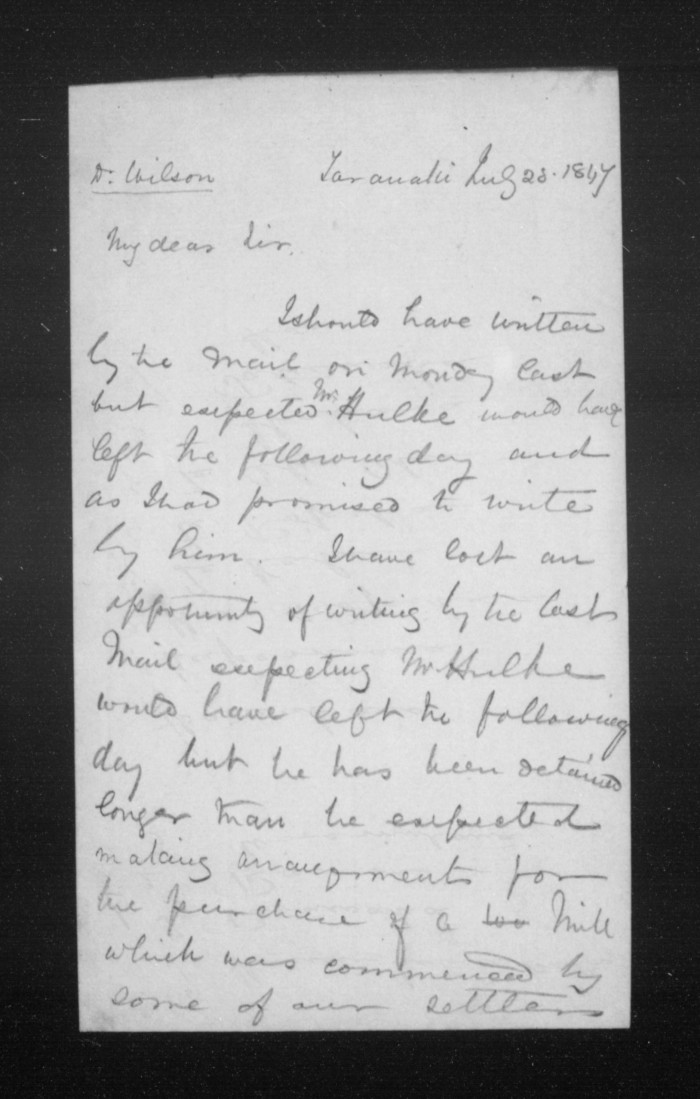 Dr. Wilson Taranaki July 28. 1847
My dear Sir,
I should have written
by the Mail on Monday last
but expected Mr. Hulke would have
left the following day and
as I had promised to write
by him. I have lost an
opportunity of writing by the last
Mail expecting Mr Hulke
would have left the following
day but he has been detained
longer than he expected
making arrangements for
the purchase of a Mill
which was commenced by
some of our settlers